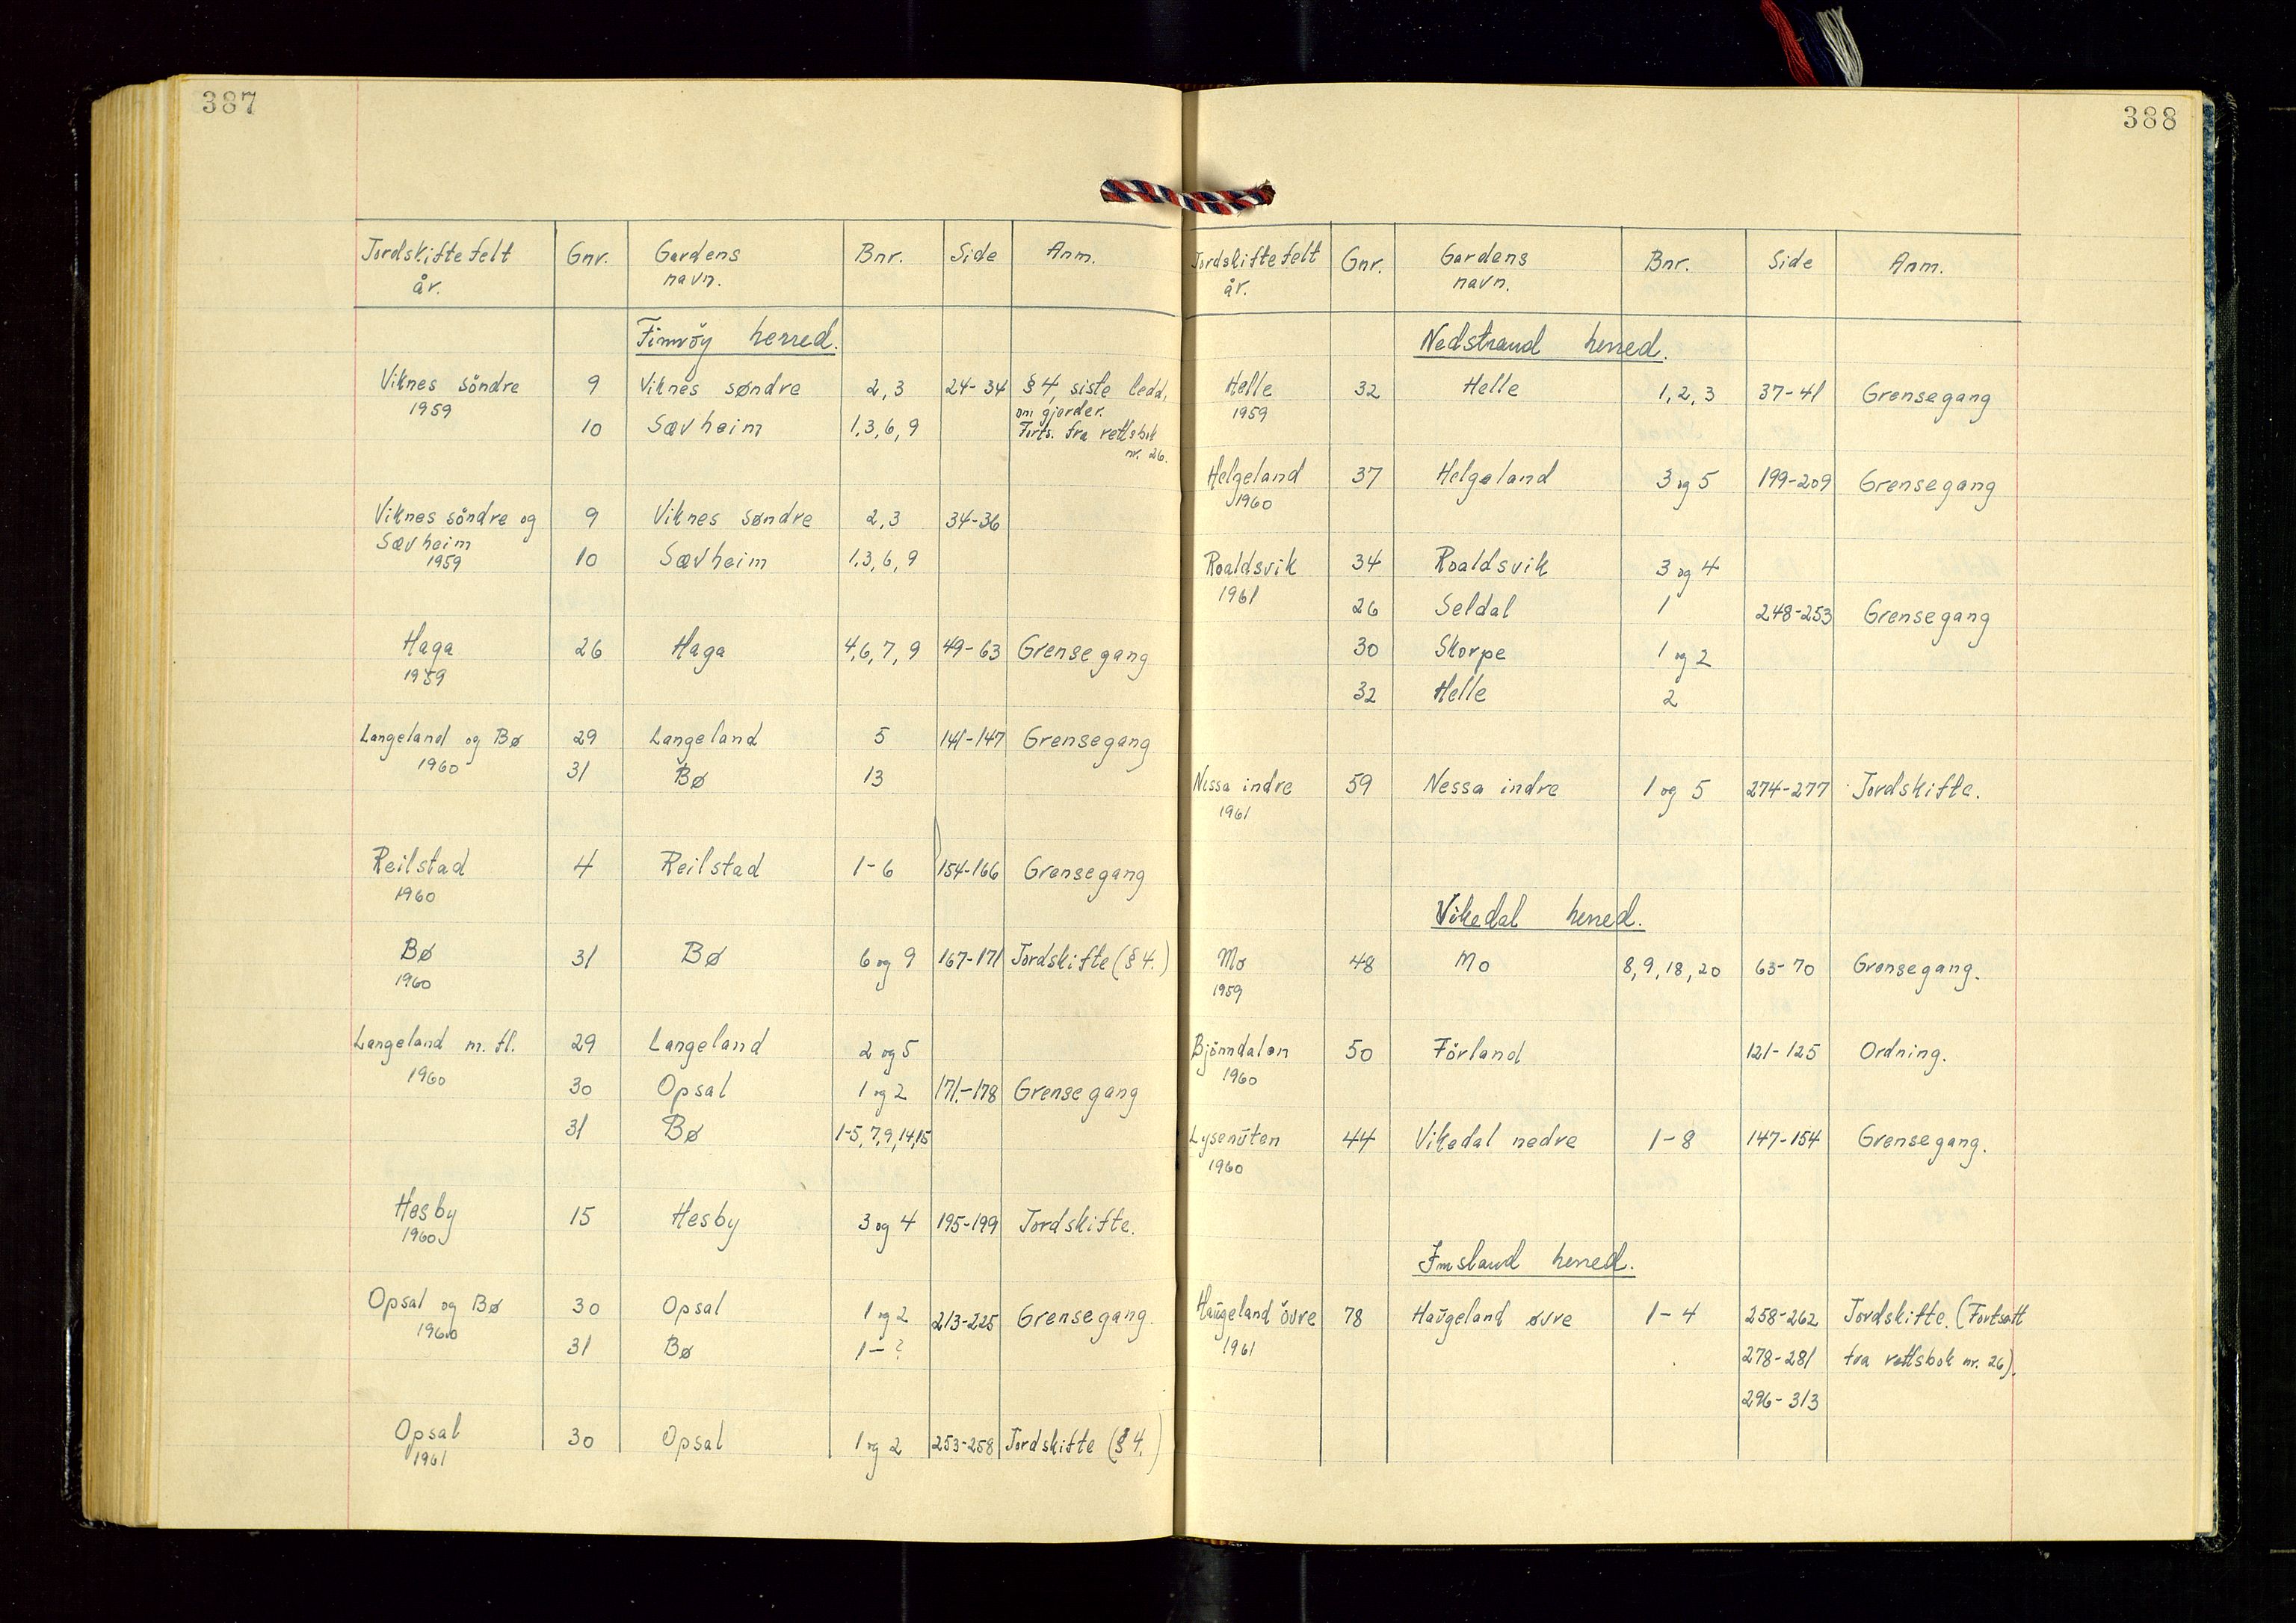 387
Jordskiftefelt Gnr. Gardens Bnr. Side Anm.
år. navn.
Finnøy herred.
Viknes söndre 9 Viknes søndre 2, 3 24-34 § 4, siste ledd,
1959 om gjerder.
10 Sævheim 1, 3, 6, 9 Forts. fra rettsbok
nr. 26.
Viknes söndre og 9 Viknes søndre 2, 3 34-36
Sævheim
1959 10 Sævheim 1, 3, 6, 9
Haga 26 Haga 4, 6, 7, 9 49-63 Grensegang
1959
Langeland og Bø 29 Langeland 5 141-147 Grensegang
1960 31 Bø 13
Reilstad 4 Reilstad 1-6 154-166 Grensegang
1960
Bø 31 Bø 6 og 9 167-171 Jordskifte (§ 4.)
1960
Langeland m. fl. 29 Langeland 2 og 5
1960 30 Opsal 1 og 2 171.-178 Grensegang
31 Bø 1-5, 7, 9, 14, 15
Hesby 15 Hesby 3 og 4 195-199 Jordskifte.
1960
Opsal og Bø 30 Opsal 1 og 2 213-225 Grensegang.
1960 31 Bø 1 - ?
Opsal 30 Opsal 1 og 2 253-258 Jordskifte (§ 4.)
1961
388
Jordskiftefelt Gnr. Gardens Bnr. Side Anm.
år. navn.
Nedstrand herred.
Helle 32 Helle 1, 2, 3 37-41 Grensegang
1959
Helgeland 37 Helgeland 3 og 5 199-209 Grensegang
1960
Roaldsvik 34 Roaldsvik 3 og 4
1961 26 Seldal 1 248-253 Grensegang
30 Skorpe 1 og 2
32 Helle 2
Nessa indre 59 Nessa indre 1 og 5 274-277 Jordskifte.
1961
Vikedal herred.
Mo 48 Mo 8, 9, 18, 20 63-70 Grensegang.
1959
Bjönndalen 50 Förland 121-125 Ordning.
1960
Lysenuten 44 Vikedal nedre 1-8 147-154 Grensegang.
1960
Imsland herred.
Haugeland övre 78 Haugeland øvre 1-4 258-262 Jordskifte. (Fortsatt
1961 278-281 fra rettsbok nr. 26).
296-313